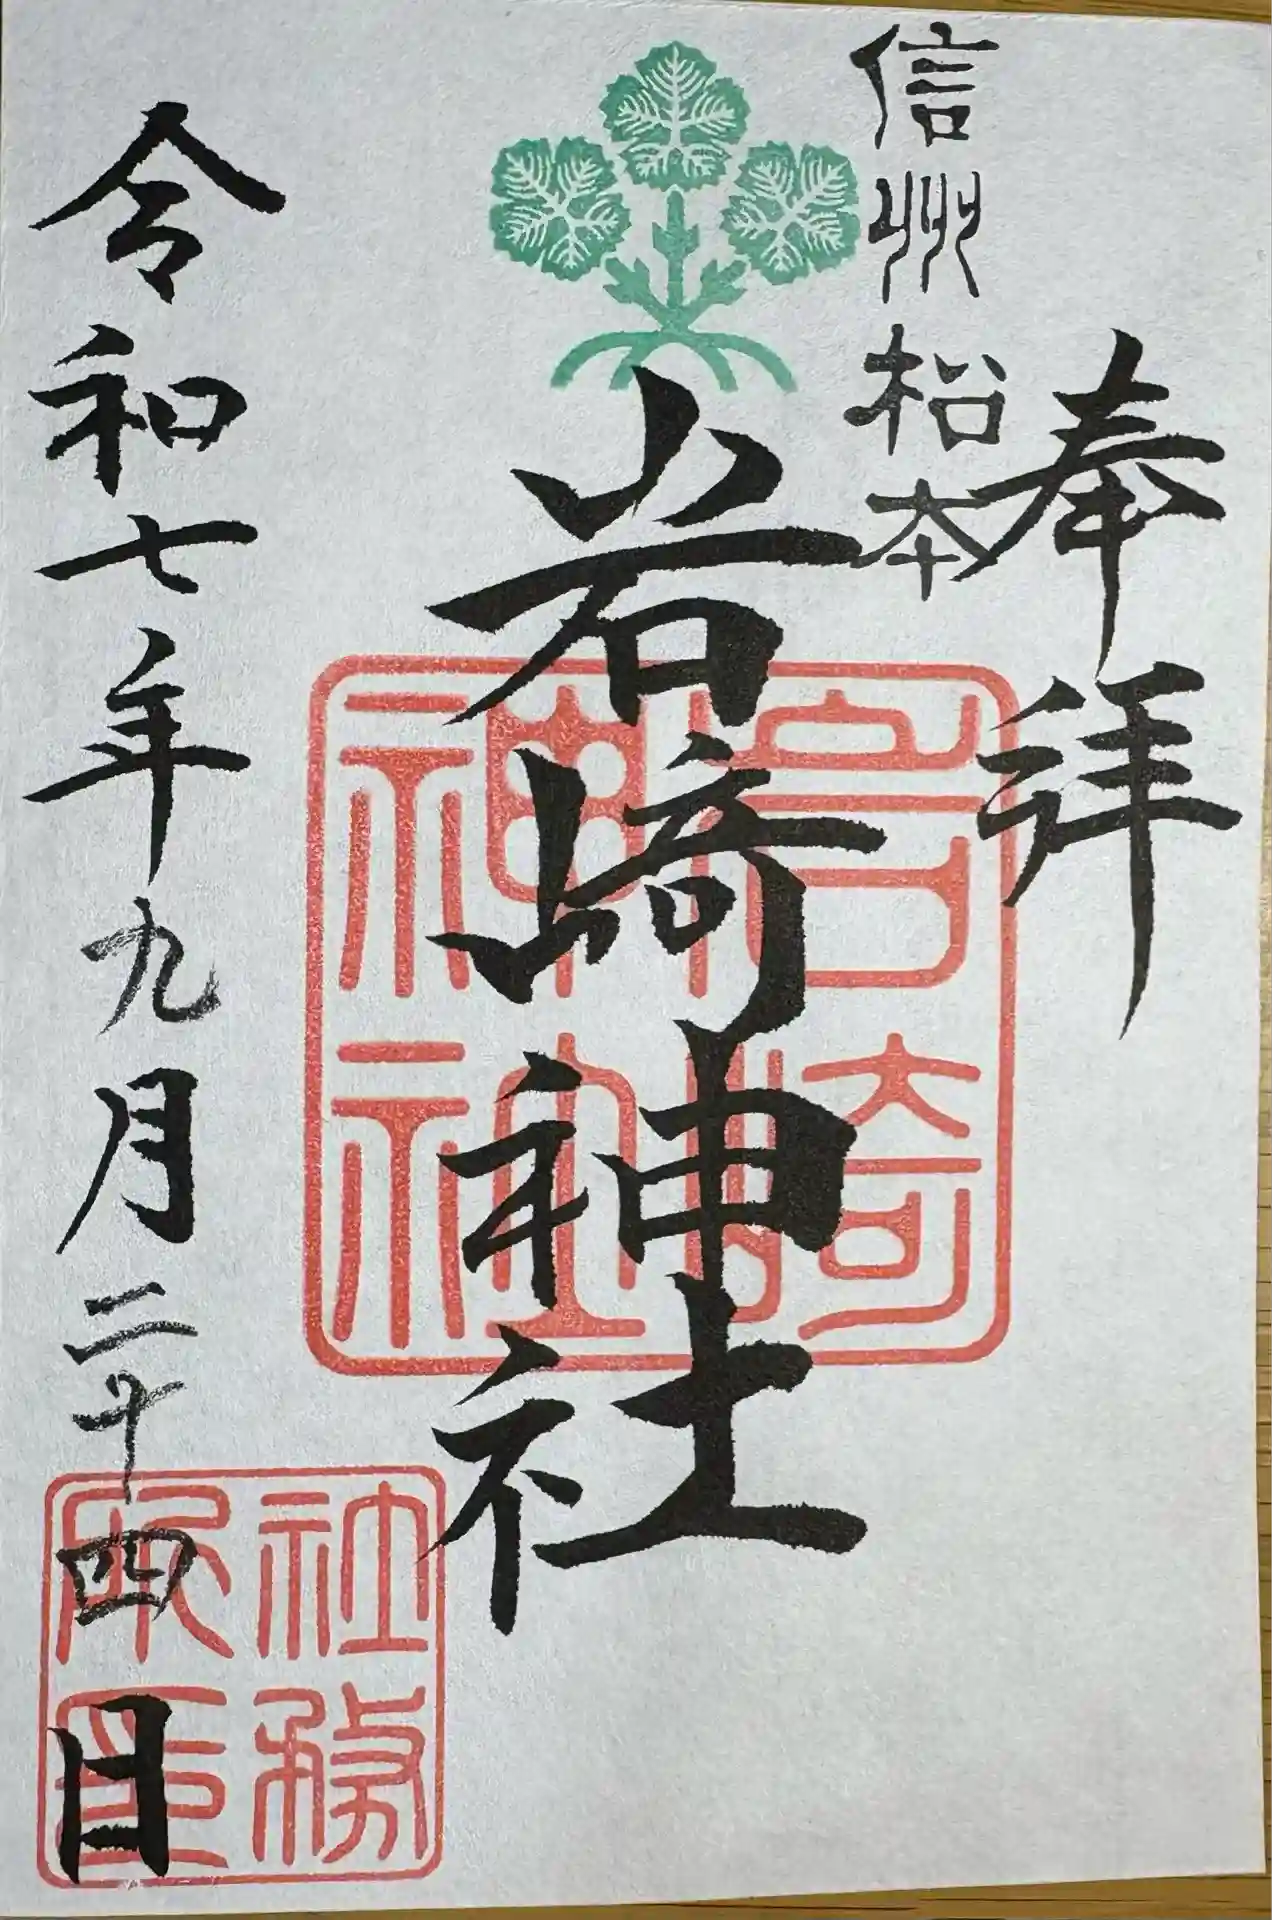 奉拝
信州松本
岩崎神社
岩崎神社
令和七年九月二十四日
社務所印